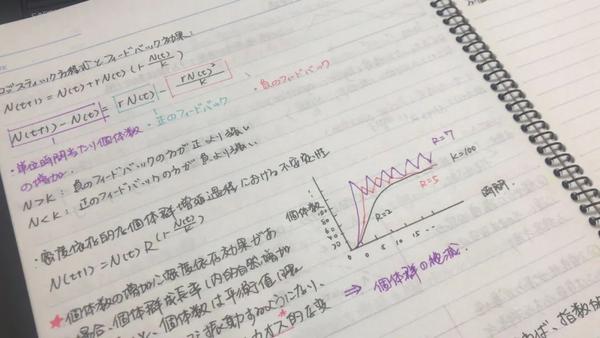 ロジスティック方程式とフィードバック効果:
N(t+1) = N(t) + rN(t) (1- N(t)/K)
N(t+1) - N(t) = rN(t) - rN(t)²/K
・負のフィードバック
・正のフィードバック
・単位時間当たり個体数の増加.
N>K: 負のフィードバックの方が正より強い
N<K: 正のフィードバックの方が負より強い
・密度依存的な個体群増殖過程における不安定性
N(t+1) = N(t) R (1- N(t)/K)
個体数
R=7
R=5
R=2
K=100
時間.
0 5 10 15 ...
★個体数の増加に密度依存効果があ
場合、個体群成長率(内的自然増加
個体数は平衡値に
振動するようになり、
カオス的な変
⇒ 個体群の絶滅.
ば、指数